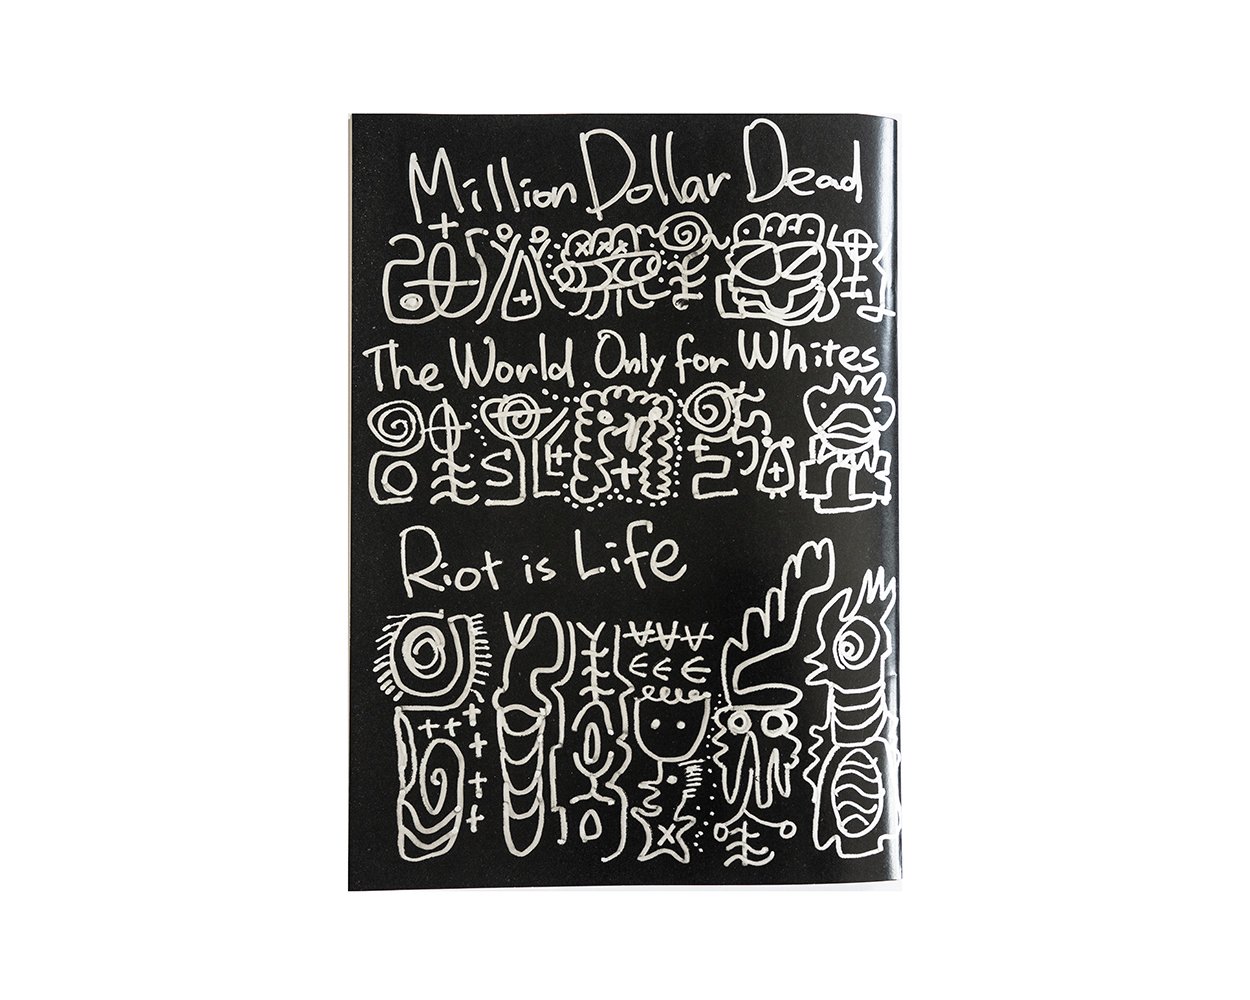 Million Dollar Dead
The World Only for Whites
Riot is Life